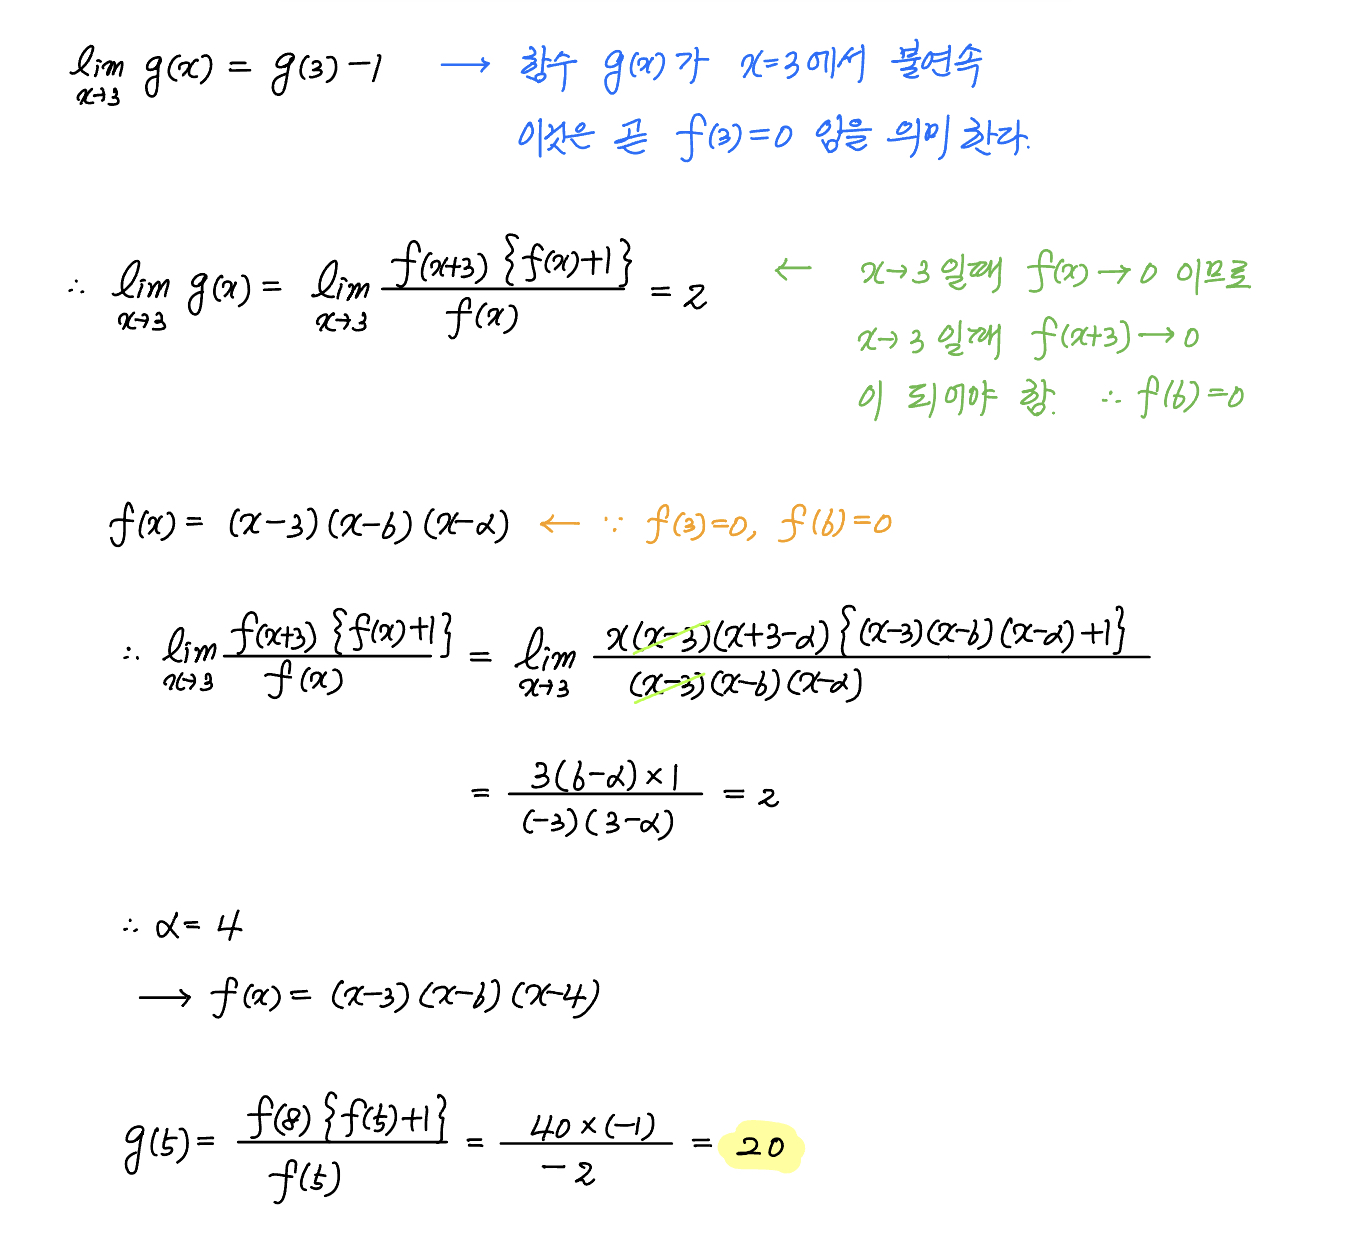 lim x→3 g(x) = g(3) - 1 → 함수 g(x)가 x=3에서 불연속
이것은 곧 f(3)=0 임을 의미한다.
∴ lim x→3 g(x) = lim x→3 f(x+3){f(x)+1} / f(x) = 2 ← x→3일때 f(x)→0 이므로
x→3일때 f(x+3)→0
이 되어야 함. ∴ f(6)=0
f(x) = (x-3)(x-6)(x-α) ← ∵ f(3)=0, f(6)=0
∴ lim x→3 f(x+3){f(x)+1} / f(x) = lim x→3 x(x-3)(x+3-α){(x-3)(x-6)(x-α)+1} / (x-3)(x-6)(x-α)
= 3(6-α)×1 / (-3)(3-α) = 2
∴ α = 4
→ f(x) = (x-3)(x-6)(x-4)
g(5) = f(8){f(5)+1} / f(5) = 40×(-1) / -2 = 20